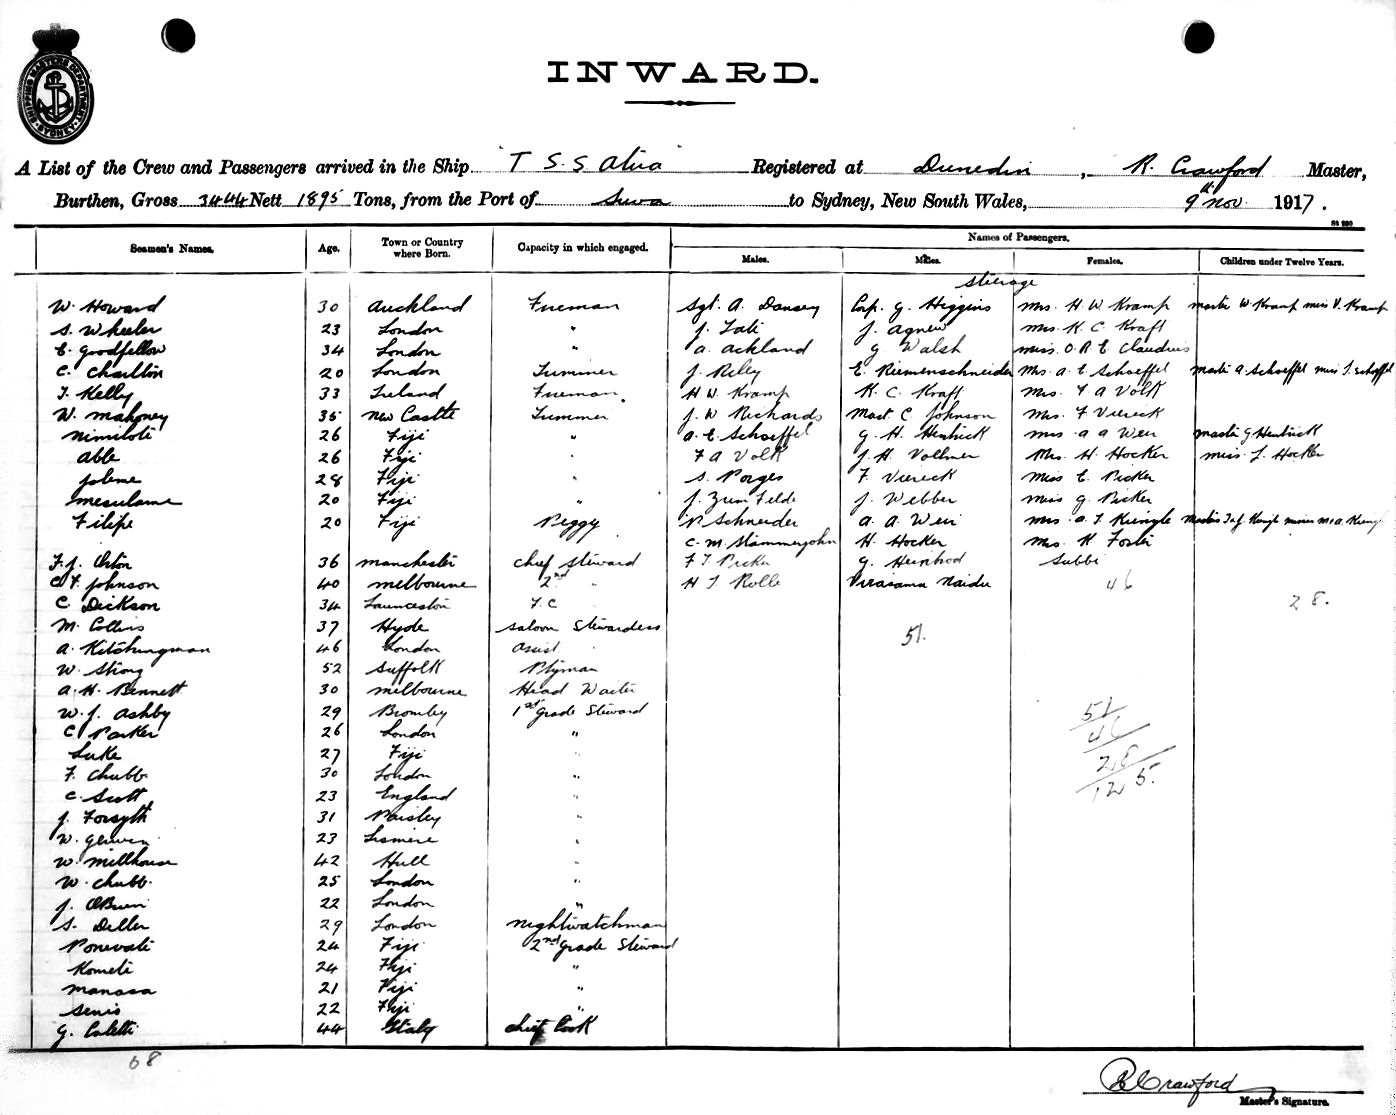 SHIPPING MASTERS DEPARTMENT SYDNEY
INWARD.
A List of the Crew and Passengers arrived in the Ship T S.S Atua Registered at Dunedin, R. Crawford Master,
Burthen, Gross 3444 Nett 1895 Tons, from the Port of Suva to Sydney, New South Wales, 9th Nov 1917.
Names of Passengers.
Seamen's Names. Age. Town or Country where Born. Capacity in which engaged. Males. Males. Females. Children under Twelve Years.
Steerage
W. Howard 30 Auckland Fireman Sgt. A. Dansey Corp. G. Higgins Mrs. H W. Kramp Master W Kramp Miss V. Kramp
S. Wheeler 23 London " J. Tait J. Agnew Mrs. K. C. Kraft
E. Goodfellow 34 London " A. Ackland G. Walsh Miss. O. R E. Claudius
C. Charlton 20 London Trimmer J. Riley E. Riemenschneider Mrs. A. E Schoeffel Master A. Schoeffel Miss J. Schoeffel
T. Kelly 33 Ireland Fireman. H W. Kramp K. C. Kraft Mrs. F A Volk
W. Mahoney 35 New Castle Trimmer J. W Richards Mast. C. Johnson Mrs. F Viereck
Nimiloti 26 Fiji " A. E Schoeffel G. H. Hentrick Mrs A A Weir Master G Hentrick
Able 26 Fiji " F A Volk J. H. Vollmer Mrs. H. Hocker Miss. J. Hocker
Joleme 28 Fiji " S. Porges F. Viereck Miss E. Picker
Mesulame 20 Fiji " J. Zum Felde J. Webber Miss G. Picker
Filipe 20 Fiji Peggy P. Schneider A. A. Weir Mrs. A. J.
C. M. Stammerjohn H. Hocker Mrs. H Foster
F. J. Orton 36 Manchester Chief Steward F. J Picker G. Subbi
C. F. Johnson 40 Melbourne 2nd " H J Rolle Virasama Naidu 46
C. Dickson 34 Launceston F. C 28.
M. Collins 37 Hyde Saloon Stewardess 51.
A. Kitchingman 46 London Assist
W. Strong 52 Suffolk Ptyman
A. H. Bennett 30 Melbourne Head Waiter
W. J. Ashby 29 Bromley 1st grade Steward 51
C Parker 26 London " 46
Luke 27 Fiji " 28
F. Chubb 30 London " 125.
C. Scott 23 England "
J. Forsyth 31 Paisley "
W. 23 Lismore "
W. Millhouse 42 Hull "
W. Chubb. 25 London "
J. OBrien 22 London "
S. Deller 29 London Nightwatchman
Ponevati 24 Fiji 2nd grade Steward
Kometi 24 Fiji "
Manasa 21 Fiji "
Senio 22 Fiji "
G. Coletti 44 Italy Chief Cook
68
R Crawford
Master's Signature.